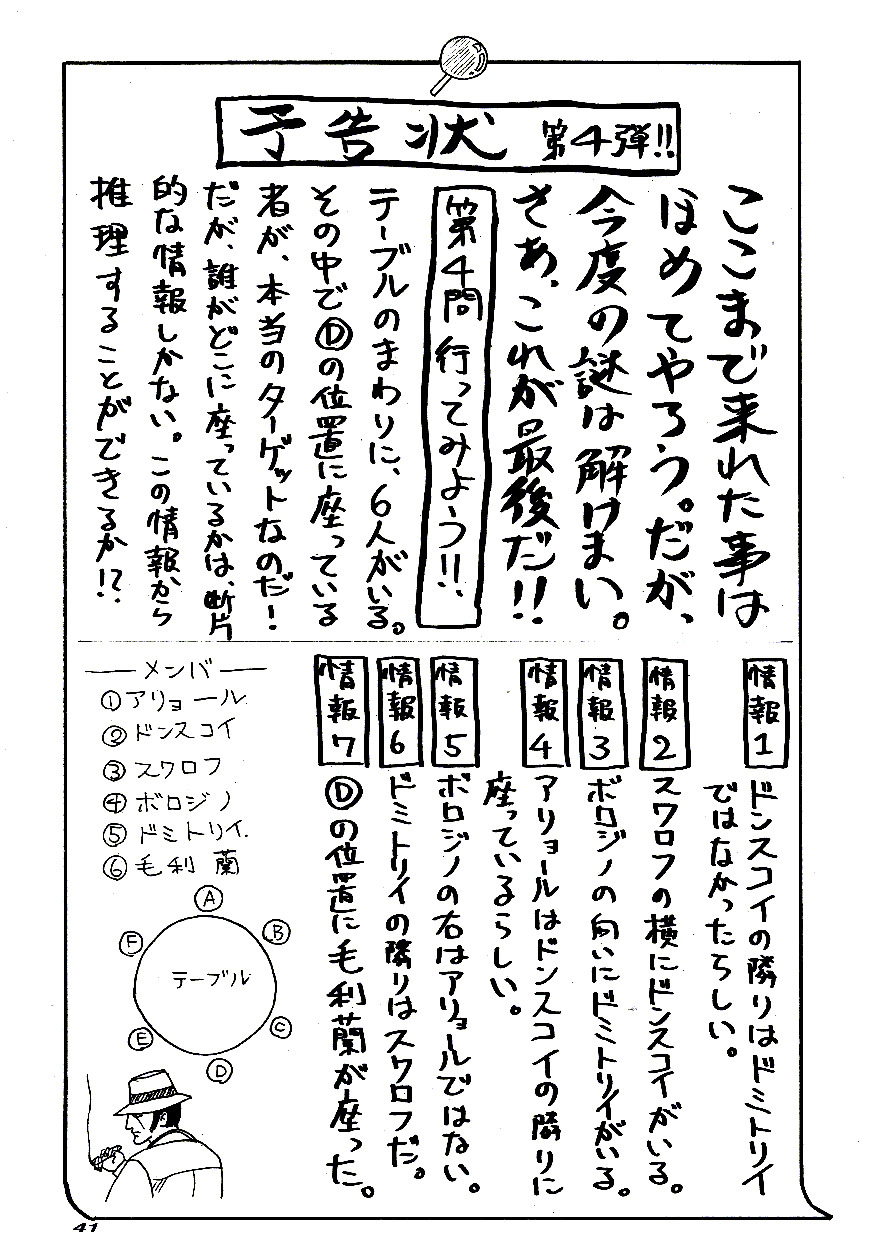 予告状 第4弾!!
ここまで来れた事は
ほめてやろう。だが、
今度の謎は解けまい。
さあ、これが最後だ!!
第4問 行ってみよう!!
テーブルのまわりに、6人がいる。
その中でⒹの位置に座っている
者が、本当のターゲットなのだ!
だが、誰がどこに座っているかは、断片
的な情報しかない。この情報から
推理することができるか!?
情報1
ドンスコイの隣りはドミトリイ
ではなかったらしい。
情報2
スワロフの横にドンスコイがいる。
情報3
ボロジノの向いにドミトリイがいる。
情報4
アリョールはドンスコイの隣りに
座っているらしい。
情報5
ボロジノの右はアリョールではない。
情報6
ドミトリイの隣りはスワロフだ。
情報7
Ⓓの位置に毛利蘭が座った。
メンバ
①アリョール
②ドンスコイ
③スワロフ
④ボロジノ
⑤ドミトリイ
⑥毛利 蘭
Ⓐ
Ⓑ
Ⓒ
Ⓓ
Ⓔ
Ⓕ
テーブル
41